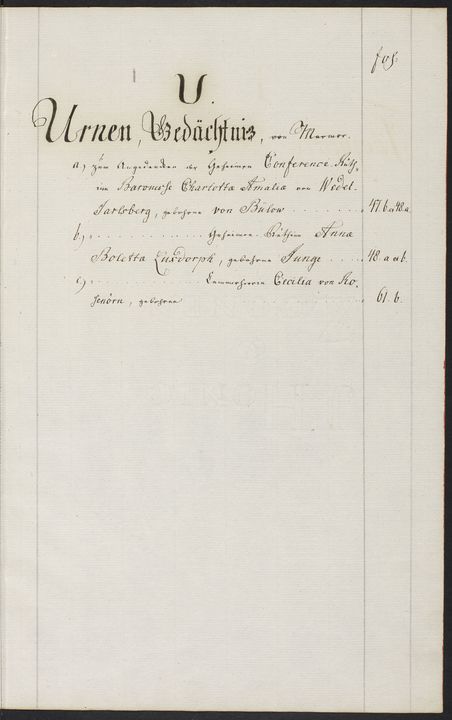 fol.
U.
Urnen, Gedächtnis, von Marmor.
a, zum Angedenken der Geheimen Conference-Räth-
inn Baronesse Charlotta Amalia von Wedel-
Jarlsberg, gebohrne von Bülow . . . . . . . . 47. b. 48. a.
b, . . . . . . . . . . . . . Geheimen-Räthinn Anna
Boletta Luxdorph, gebohrne Junge . . . . . 48. a et b.
c, . . . . . . . . . . . . . Cammerherrin Cecilia von Ro-
senörn, gebohrne . . . . . . . . . . . . . . . 61. b.